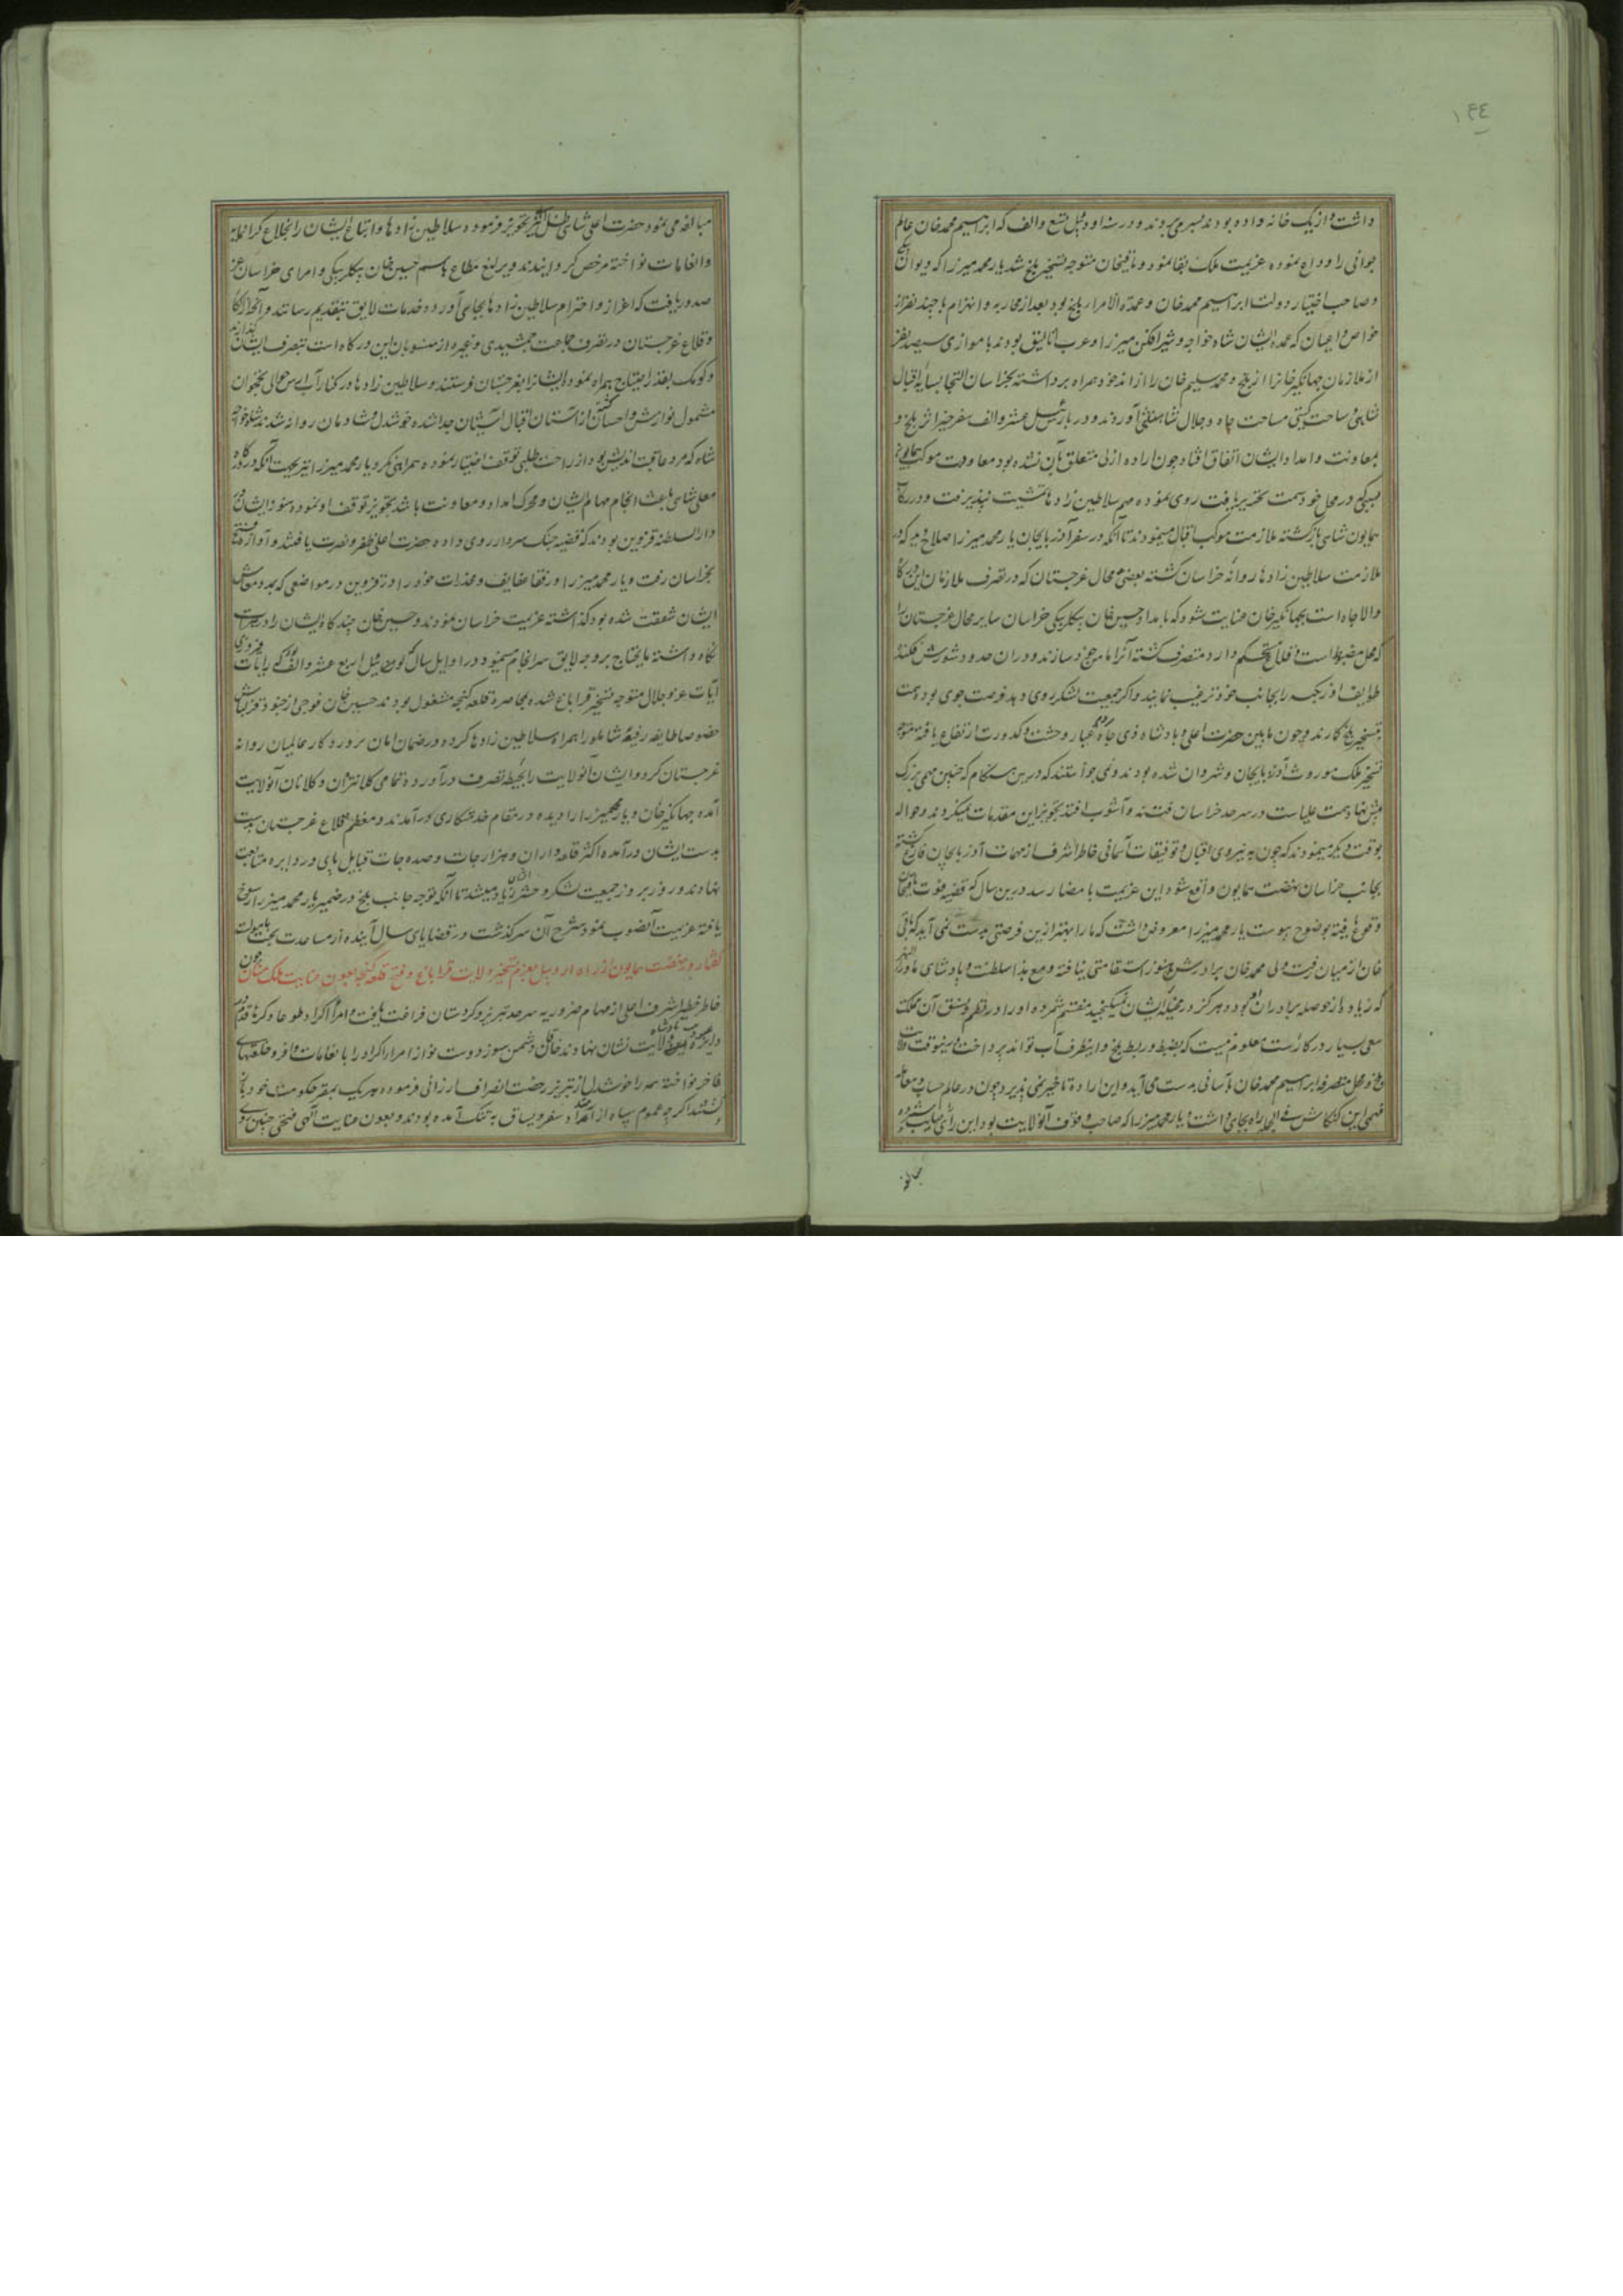 ۱۴۴
داشت و از یک خانه واده بودند بسر می بردند و در سنه اودئیل تسع و الف که ابراهیم محمد خان عالم
جوانی را وداع نموده عزیمت ملک بقا نمود و باقیخان متوجه تسخیر بلخ شد یار محمد میرزا که دیوان بیکی
و صاحب اختیار دولت ابراهیم محمد خان و عمدة الامراء بلخ بود بعد از محاربه و انهزام با چند نفر از
خواص و اعیان که عمده ایشان شاه خواجه و شیر افکن میرزا و عرب اتالیق بودند با موازی سیصد نفر
از ملازمان جهانگیر خانرا از بلخ و محمد سلیم خان را از اندخود همراه برداشته بخراسان التجا بسایه اقبال
شاهی و ساحت گیتی مساحت جاه و جلال شاهنشاهی آوردند و در بارس ئیل عشر و الف سفر خیر اثر بلخ و
بمعاونت و امداد ایشان اتفاق افتاد چون اراده ازلی متعلق بآن نشده بود معاودت موکب همایون
بسبکی در محل خود سمت تحریر یافت روی نموده مهم سلاطین زادها تمشیت نپذیرفت و در رکاب
همایون شاهی بازگشته ملازمت موکب اقبال مینمودند تا آنکه در سفر آذربایجان یار محمد میرزا صلاح دید که در
ملازمت سلاطین زادها روانه خراسان گشته بعضی محال غرجستان که در تصرف ملازمان این درگاه
والا جاه است بجهانگیر خان عنایت شود که بامداد حسین خان بیکلربیکی خراسان سایر محال غرجستان را
که محل مضبوط است و قلاع مستحکم دارد متصرف گشته آنرا مامن خود سازند و در آن حدود شورش افکنده
طوایف اوزبکیه را بجانب خود ترغیب نمایند و اگر جمعیت لشکر روی دهد فرصت جوی بوده همت
بتسخیر بلخ گمارند و چون مابین حضرت اعلی و پادشاه ذی جاه روم غبار وحشت و کدورت ارتفاع یافته متوجه
تسخیر ملک موروث آذربایجان و شروان شده بودند و نمی خواستند که درین هنگام که چنین مهمی بزرگ
پیش نهاد همت علیاست در سرحد خراسان فتنه و آشوب افتد تجویز این مقدمات نمیکردند و حواله
بوقت دیگر مینمودند که چون به نیروی اقبال و توفیقات آسمانی خاطر اشرف از مهمات آذربایجان فارغ گشته
بجانب خراسان نهضت همایون واقع شود این عزیمت بامضا رسد درین سال که قضیه فوت باقیخان
وقوع یافته بوضوح پیوست یار محمد میرزا معروض داشت که ما را بهتر ازین فرصتی بدست نمی آید که باقی
خان از میان رفت و ولی محمد خان برادرش هنوز استقامتی نیافته و مع هذا سلطنت و پادشاهی ماوراء النهر
که زیاده از حوصله برادران او بود و هرگز در مخیله ایشان نمیگنجید مغتنم شمرده او را در نظم و نسق آن مملکت
سعی بسیار در کار است معلوم نیست که بضبط و ربط بلخ و اینطرف آب تواند پرداخت و اینوقت ولایت
بلخ و محل متصرفه ابراهیم محمد خان بآسانی بدست می آید و این اراده تاخیر نمی پذیرد چون در عالم حساب و معامله
فهمی این کنکاش فی الجمله راه بجای داشت و یار محمد میرزا که صاحب وقوف آنولایت بود این رای صایب شمرده
مبالغه
مبالغه می نمود حضرت اعلی شاهی ظل اللهی تجویز فرموده سلاطین زادها و اتباع ایشان را بخلاع گرانمایه
و انعامات نواخته مرخص گردانیدند و یرلیغ مطاع باسم حسین خان بیکلربیکی و امرای خراسان عز
صدور یافت که اعزاز و احترام سلاطین زادها بجای آورده خدمات لایق بتقدیم رسانند و آنچه از الکا
و قلاع غرجستان در تصرف جماعت جمشیدی و غیره از منسوبان این درگاه است بتصرف ایشان گذارند
و کومک بقدر احتیاج همراه نموده ایشانرا بغرجستان فرستند و سلاطین زادها در کنار آب ارس حوالی نخجوان
مشمول نوازش و احسان گشته از آستان اقبال آشیان جدا شده خوشدل و شادمان روانه شدند شاه خواجه
شاه که مرد عاقبت اندیش بود از راحت طلبی توقف اختیار نموده همراهی نکرد یار محمد میرزا نیز بجهت آنکه در درگاه
معلی شاهی باعث انجام مهام ایشان و محرک امداد و معاونت باشد تجویز توقف او نموده هنوز ایشان در
دار السلطنه قزوین بودند که قضیه جنک سردار روی داده حضرت اعلی ظفر و نصرت یافتند و آوازه فتح
بخراسان رفت و یار محمد میرزا و رفقا عفایف و مخدرات خود را در قزوین در مواضعی که بمدد معاش
ایشان شفقت شده بود گذاشته عزیمت خراسان نمودند و حسین خان چند گاه ایشان را در هرات
نگاه داشته مایحتاج بر وجه لایق سرانجام مینمود و در اوایل سال اربع عشر و الف که رایات فیروزی
آیات عز و جلال متوجه تسخیر قراباغ شده بمحاصره قلعه گنجه مشغول بودند حسین خان فوجی از جنود قزلباش
خصوصا طایفه رفیعه شاملو را همراه سلاطین زادها کرده در ضمان امان پروردگار عالمیان روانه
غرجستان کرد و ایشان آنولایت را بحیطه تصرف درآورده تمامی کلانتران و کلانان آنولایت
آمده جهانگیر خان و یار محمد میرزا را دیده در مقام خدمتکاری درآمدند و معظم قلاع غرجستان بدست
بدست ایشان درآمده اکثر قلعه داران و هزارجات و صده جات قبایل پای در دایره متابعت
نهادند و روز بروز جمعیت لشکر و حشر ایشان زیاد میشد تا آنکه توجه جانب بلخ در ضمیر یار محمد میرزا رسوخ
یافته عزیمت آنصوب نمود شرح آن سرگذشت در قضایای سال آینده از مساعدت بخت
گفتار در نهضت همایون از راه اردبیل بعزم تسخیر ولایات قراباغ و فتح قلعه گنجه بعون عنایت ملک منان چون
خاطر خطیر اشرف اعلی از مهام ضروریه سرحد تبریز و کردستان فراغت یافت و امراء اکراد طوعا و کرها قدم در
دایره عبودیت پادشاه ولایت نشان نهادند خاقان دشمن سوز دوست نواز امراء اکراد را بانعامات وافر و خلعتهای
فاخر نواخته همه را خوشدل از تبریز رخصت انصراف ارزانی فرموده هر یک بمقر حکومت خود
گشتند اگرچه عموم سپاه از امتداد سفر و یساق به تنک آمده بودند و بعون عنایت الهی فتحی چنین روی